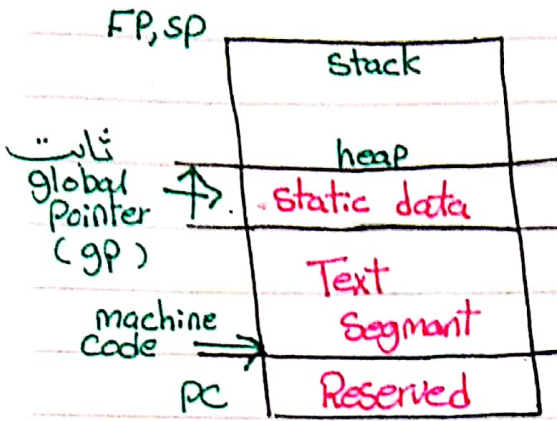 FP, SP
stack
heap
ثابت
global
Pointer
(gp)
static data
Text
Segmant
machine
code
PC
Reserved